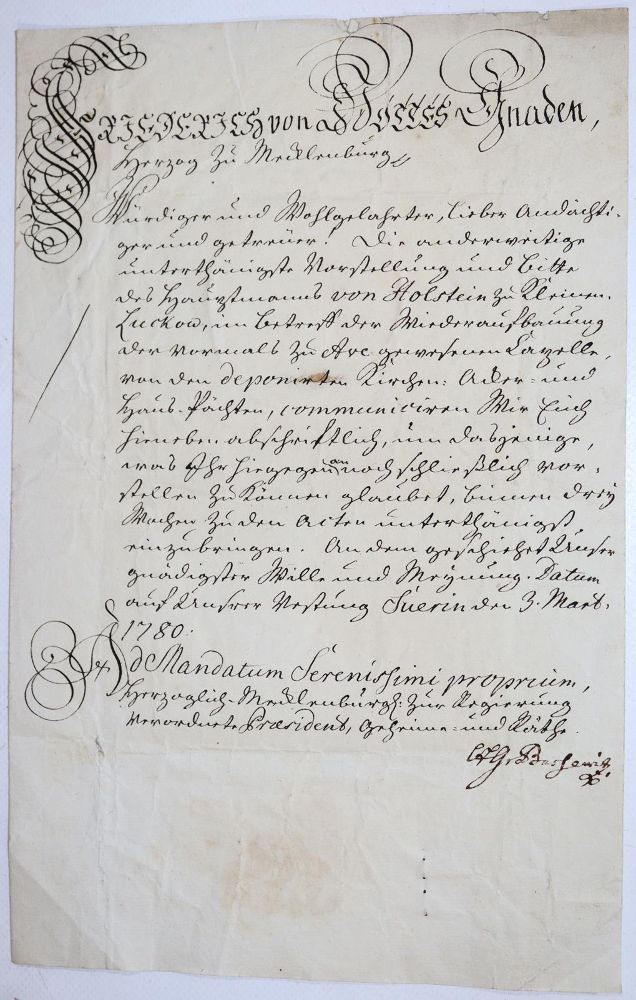 FRIEDERICH von GOTTES Gnaden,
Herzog zu Mecklenburg
Würdiger und Wohlgelahrter, lieber Andächti-
ger und getreuer! Die anderweitige
unterthänigste Vorstellung und Bitte
des Hauptmanns von Holstein zu Kleinen-
Luckow, in Betreff der Wiederaufbauung
der vormals zu gewesenen Capelle,
von den deponirten Kirchen: Acker- und
Haus-Pächten, communiciren Wir Euch
hieneben abschriftlich, um dasjenige,
was Ihr hiegegen an noch schließlich vor-
stellen zu können glaubet, binnen drey
Wochen zu den Acten unterthänigst
einzubringen. An dem geschiehet Unser
gnädigster Wille und Meynung. Datum
auf Unsrer Vestung Suerin den 3. Mart.
1780.
Ad Mandatum Serenissimi proprium,
Herzoglich-Mecklenburgs: zur Regierung
verordnete Præsident, Geheime- und Räthe.